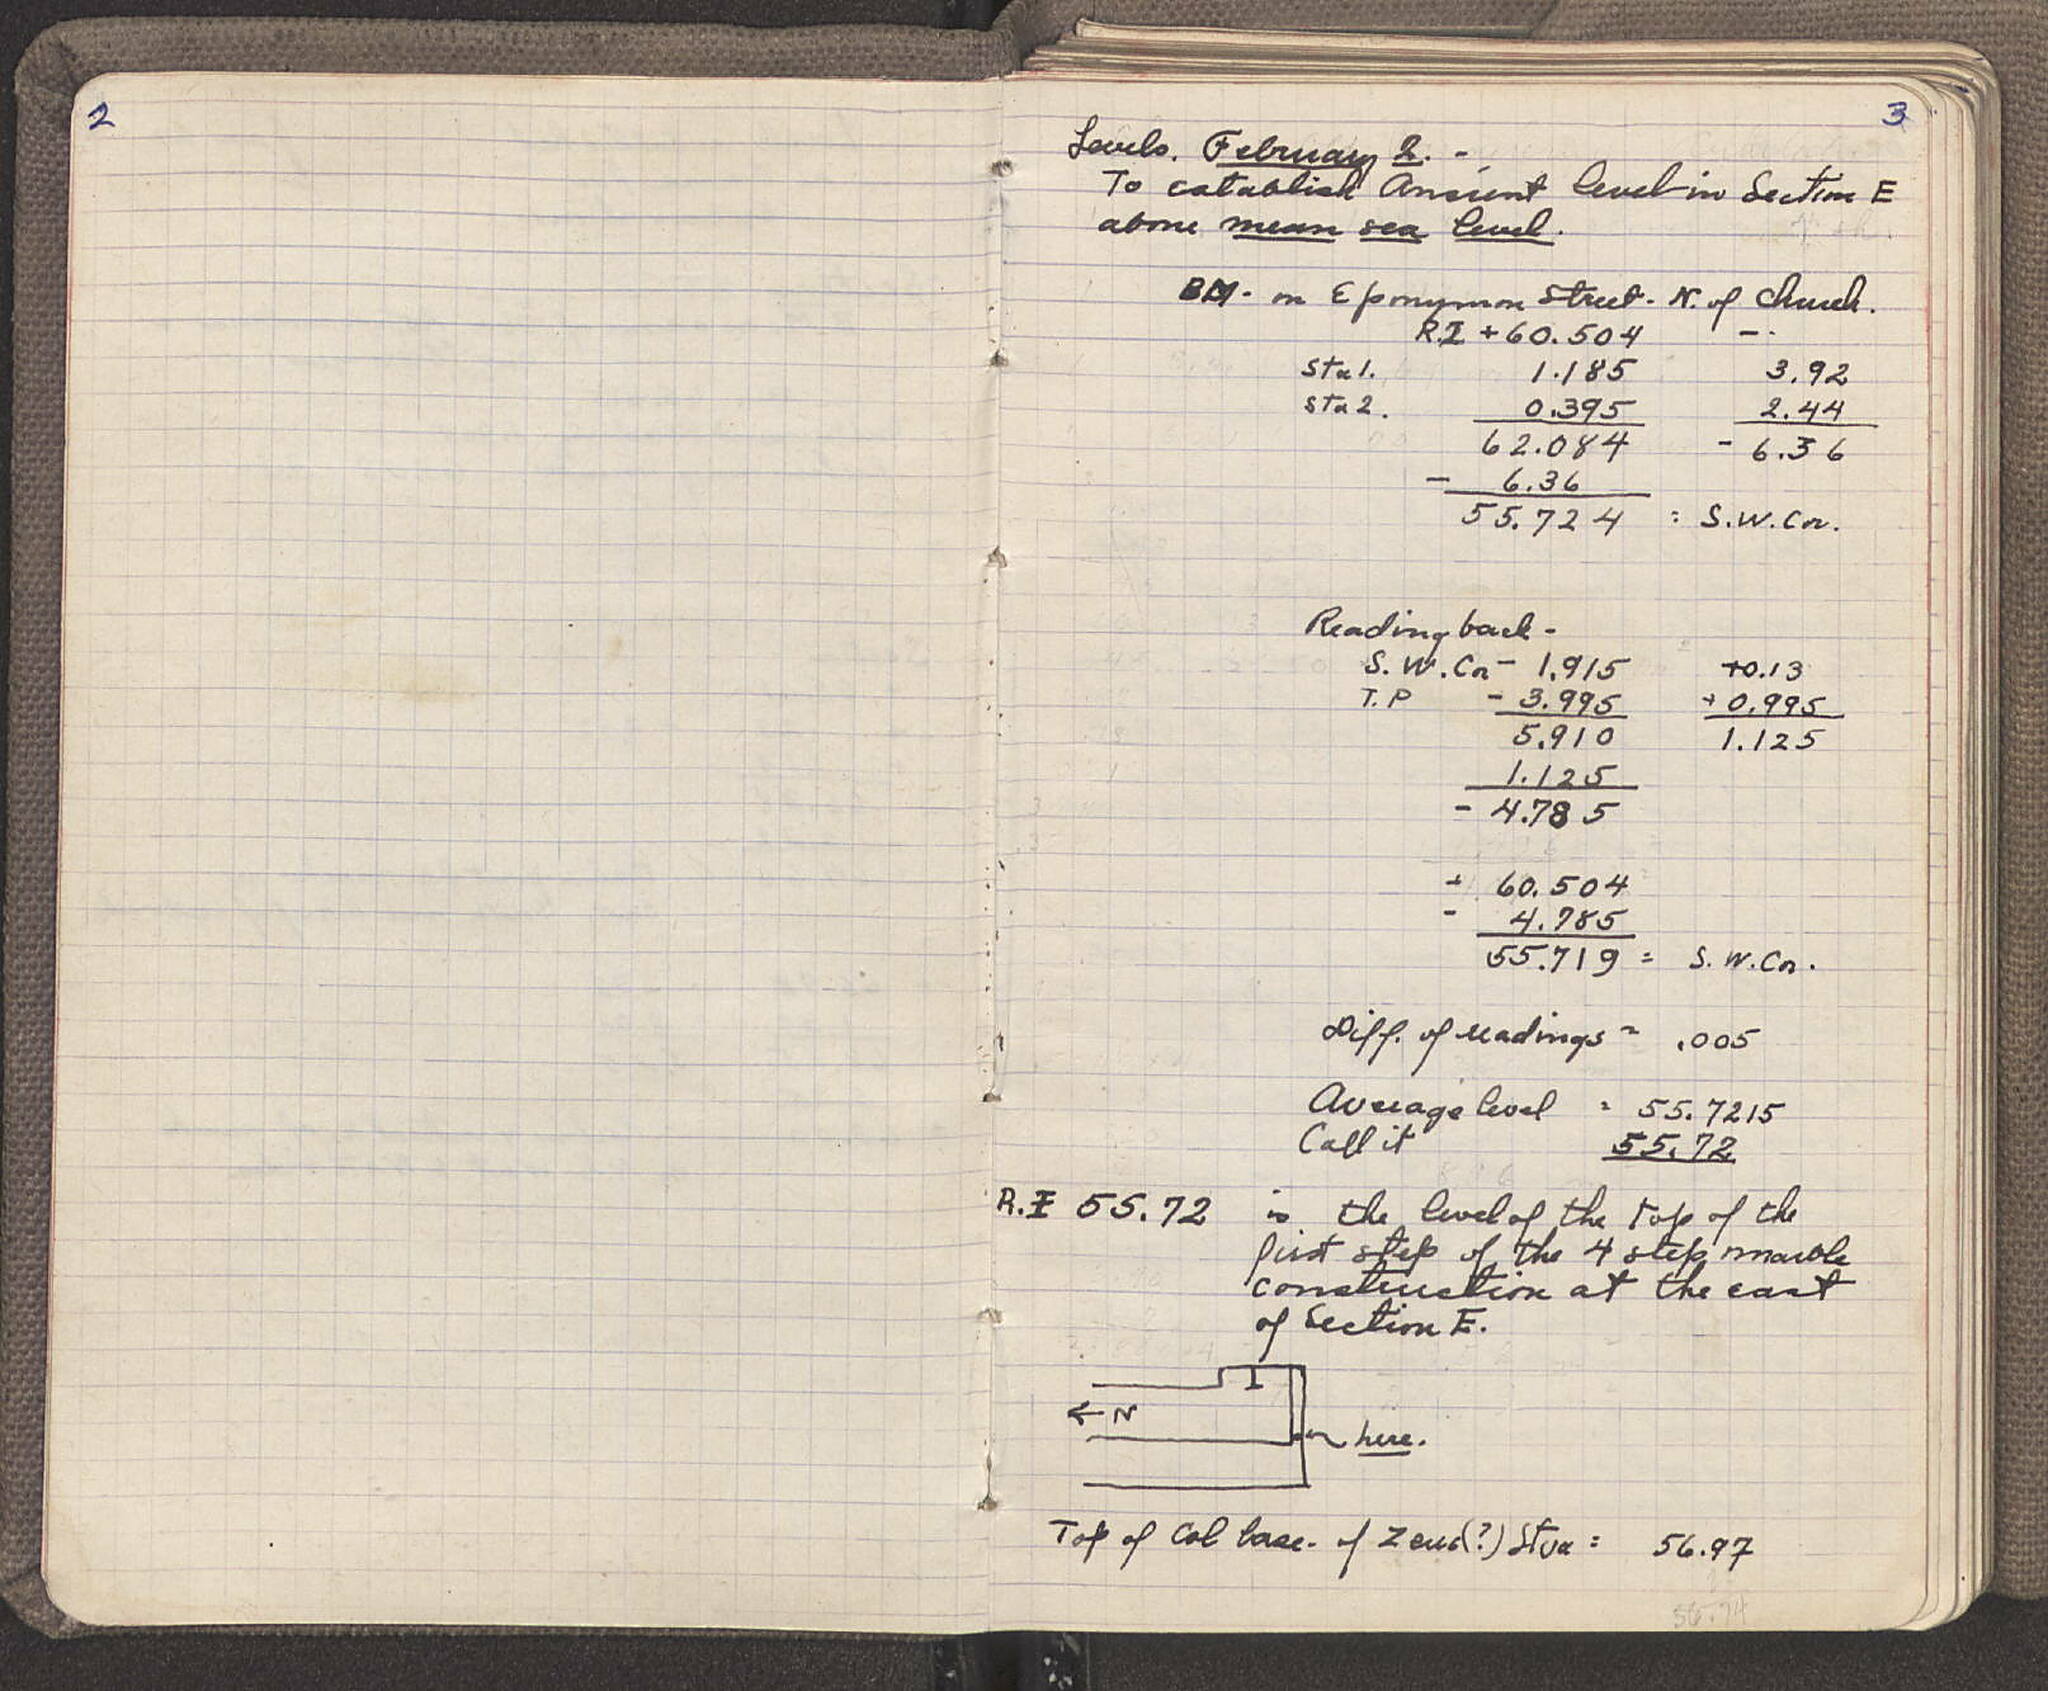 2
3
Levels. February 2. -
To establish Ancient level in Section E
above mean sea level.
BM - on Eponymon Street - N. of Church.
R.I + 60.504 -.
Sta 1. 1.185 3.92
Sta 2. 0.395 2.44
62.084 - 6.36
- 6.36
55.724 = S.W. Cor.
Reading back -
S.W. Cor - 1.915 +0.13
T.P - 3.995 + 0.995
5.910 1.125
1.125
- 4.785
+ 60.504
- 4.785
55.719 = S.W. Cor.
Diff. of readings = .005
Average level = 55.7215
Call it 55.72
R.I 55.72 is the level of the top of the
first step of the 4 step marble
construction at the east
of Section E.
I
← N
here.
Top of Col base. of Zeus(?) Stoa = 56.97
56.74